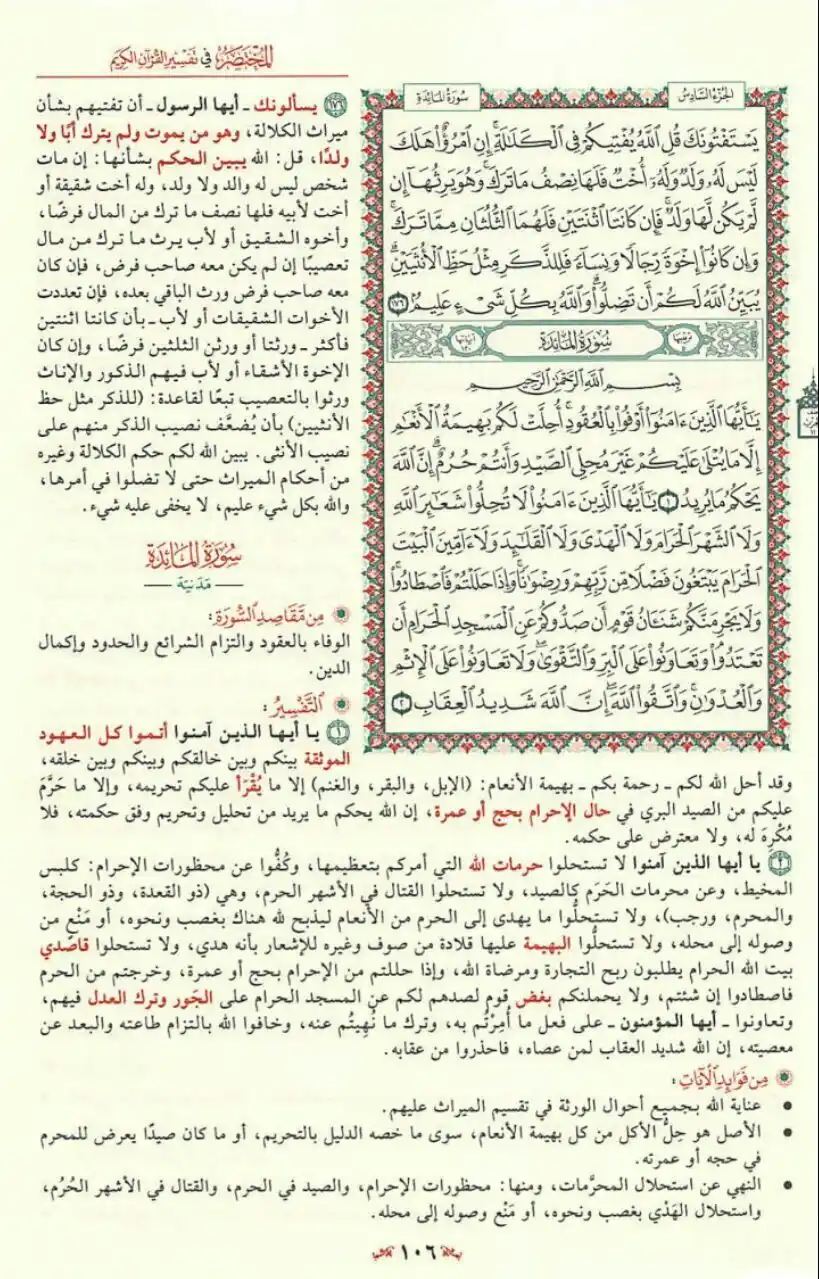 المختصر في تفسير القرآن الكريم
الجزء السادس
سورة المائدة
يَسْتَفْتُونَكَ قُلِ ٱللَّهُ يُفْتِيكُمْ فِي ٱلْكَلَٰلَةِۚ إِنِ ٱمْرُؤٌاْ هَلَكَ
لَيْسَ لَهُۥ وَلَدٌ وَلَهُۥٓ أُخْتٌ فَلَهَا نِصْفُ مَا تَرَكَۚ وَهُوَ يَرِثُهَآ إِن
لَّمْ يَكُن لَّهَا وَلَدٌۚ فَإِن كَانَتَا ٱثْنَتَيْنِ فَلَهُمَا ٱلثُّلُثَانِ مِمَّا تَرَكَۚ
وَإِن كَانُوٓاْ إِخْوَةً رِّجَالًا وَنِسَآءً فَلِلذَّكَرِ مِثْلُ حَظِّ ٱلْأُنثَيَيْنِۗ
يُبَيِّنُ ٱللَّهُ لَكُمْ أَن تَضِلُّواْۗ وَٱللَّهُ بِكُلِّ شَيْءٍ عَلِيمٌ ١٧٦
سُورَةُ المَائِدَةِ
بِسْمِ ٱللَّهِ ٱلرَّحْمَٰنِ ٱلرَّحِيمِ
يَٰٓأَيُّهَا ٱلَّذِينَ ءَامَنُوٓاْ أَوْفُواْ بِٱلْعُقُودِۚ أُحِلَّتْ لَكُم بَهِيمَةُ ٱلْأَنْعَٰمِ
إِلَّا مَا يُتْلَىٰ عَلَيْكُمْ غَيْرَ مُحِلِّي ٱلصَّيْدِ وَأَنتُمْ حُرُمٌۗ إِنَّ ٱللَّهَ
يَحْكُمُ مَا يُرِيدُ ١ يَٰٓأَيُّهَا ٱلَّذِينَ ءَامَنُواْ لَا تُحِلُّواْ شَعَٰٓئِرَ ٱللَّهِ
وَلَا ٱلشَّهْرَ ٱلْحَرَامَ وَلَا ٱلْهَدْيَ وَلَا ٱلْقَلَٰٓئِدَ وَلَآ ءَآمِّينَ ٱلْبَيْتَ
ٱلْحَرَامَ يَبْتَغُونَ فَضْلًا مِّن رَّبِّهِمْ وَرِضْوَٰنًاۚ وَإِذَا حَلَلْتُمْ فَٱصْطَادُواْۚ
وَلَا يَجْرِمَنَّكُمْ شَنَـَٔانُ قَوْمٍ أَن صَدُّوكُمْ عَنِ ٱلْمَسْجِدِ ٱلْحَرَامِ أَن
تَعْتَدُواْۘ وَتَعَاوَنُواْ عَلَى ٱلْبِرِّ وَٱلتَّقْوَىٰۖ وَلَا تَعَاوَنُواْ عَلَى ٱلْإِثْمِ
وَٱلْعُدْوَٰنِۚ وَٱتَّقُواْ ٱللَّهَۖ إِنَّ ٱللَّهَ شَدِيدُ ٱلْعِقَابِ ٢
١٧٦ يسألونك ـ أيها الرسول ـ أن تفتيهم بشأن
ميراث الكلالة، وهو من يموت ولم يترك أبًا ولا
ولدًا، قل: الله يبين الحكم بشأنها: إن مات
شخص ليس له والد ولا ولد، وله أخت شقيقة أو
أخت لأبيه فلها نصف ما ترك من المال فرضًا،
وأخوه الشقيق أو لأب يرث ما ترك من مال
تعصيبًا إن لم يكن معه صاحب فرض، فإن كان
معه صاحب فرض ورث الباقي بعده، فإن تعددت
الأخوات الشقيقات أو لأب ـ بأن كانتا اثنتين
فأكثر ـ ورثتا أو ورثن الثلثين فرضًا، وإن كان
الإخوة الأشقاء أو لأب فيهم الذكور والإناث
ورثوا بالتعصيب تبعًا لقاعدة: (للذكر مثل حظ
الأنثيين) بأن يُضعَّف نصيب الذكر منهم على
نصيب الأنثى. يبين الله لكم حكم الكلالة وغيره
من أحكام الميراث حتى لا تضلوا في أمرها،
والله بكل شيء عليم، لا يخفى عليه شيء.
سُورَةُ المَائِدَةِ
مَدَنية
من مقاصد السورة:
الوفاء بالعقود والتزام الشرائع والحدود وإكمال
الدين.
التفسير:
١ يا أيها الذين آمنوا أتموا كل العهود
الموثقة بينكم وبين خالقكم وبينكم وبين خلقه،
وقد أحل الله لكم ـ رحمة بكم ـ بهيمة الأنعام: (الإبل، والبقر، والغنم) إلا ما يُقْرَأ عليكم تحريمه، وإلا ما حَرَّمَ
عليكم من الصيد البري في حال الإحرام بحج أو عمرة، إن الله يحكم ما يريد من تحليل وتحريم وفق حكمته، فلا
مُكْرِهَ له، ولا معترض على حكمه.
٢ يا أيها الذين آمنوا لا تستحلوا حرمات الله التي أمركم بتعظيمها، وكُفُّوا عن محظورات الإحرام: كلبس
المخيط، وعن محرمات الحَرَم كالصيد، ولا تستحلوا القتال في الأشهر الحرم، وهي (ذو القعدة، وذو الحجة،
والمحرم، ورجب)، ولا تستحلُّوا ما يهدى إلى الحرم من الأنعام ليذبح لله هناك بغصب ونحوه، أو مَنْع من
وصوله إلى محله، ولا تستحلُّوا البهيمة عليها قلادة من صوف وغيره للإشعار بأنه هدي، ولا تستحلوا قاصدي
بيت الله الحرام يطلبون ربح التجارة ومرضاة الله، وإذا حللتم من الإحرام بحج أو عمرة، وخرجتم من الحرم
فاصطادوا إن شئتم، ولا يحملنكم بغض قوم لصدهم لكم عن المسجد الحرام على الجَور وترك العدل فيهم،
وتعاونوا ـ أيها المؤمنون ـ على فعل ما أُمِرْتُم به، وترك ما نُهِيتُم عنه، وخافوا الله بالتزام طاعته والبعد عن
معصيته، إن الله شديد العقاب لمن عصاه، فاحذروا من عقابه.
من فوائد الآيات:
• عناية الله بجميع أحوال الورثة في تقسيم الميراث عليهم.
• الأصل هو حِلُّ الأكل من كل بهيمة الأنعام، سوى ما خصه الدليل بالتحريم، أو ما كان صيدًا يعرض للمحرم
في حجه أو عمرته.
• النهي عن استحلال المحرَّمات، ومنها: محظورات الإحرام، والصيد في الحرم، والقتال في الأشهر الحُرُم،
واستحلال الهَدْي بغصب ونحوه، أو مَنْع وصوله إلى محله.
١٠٦